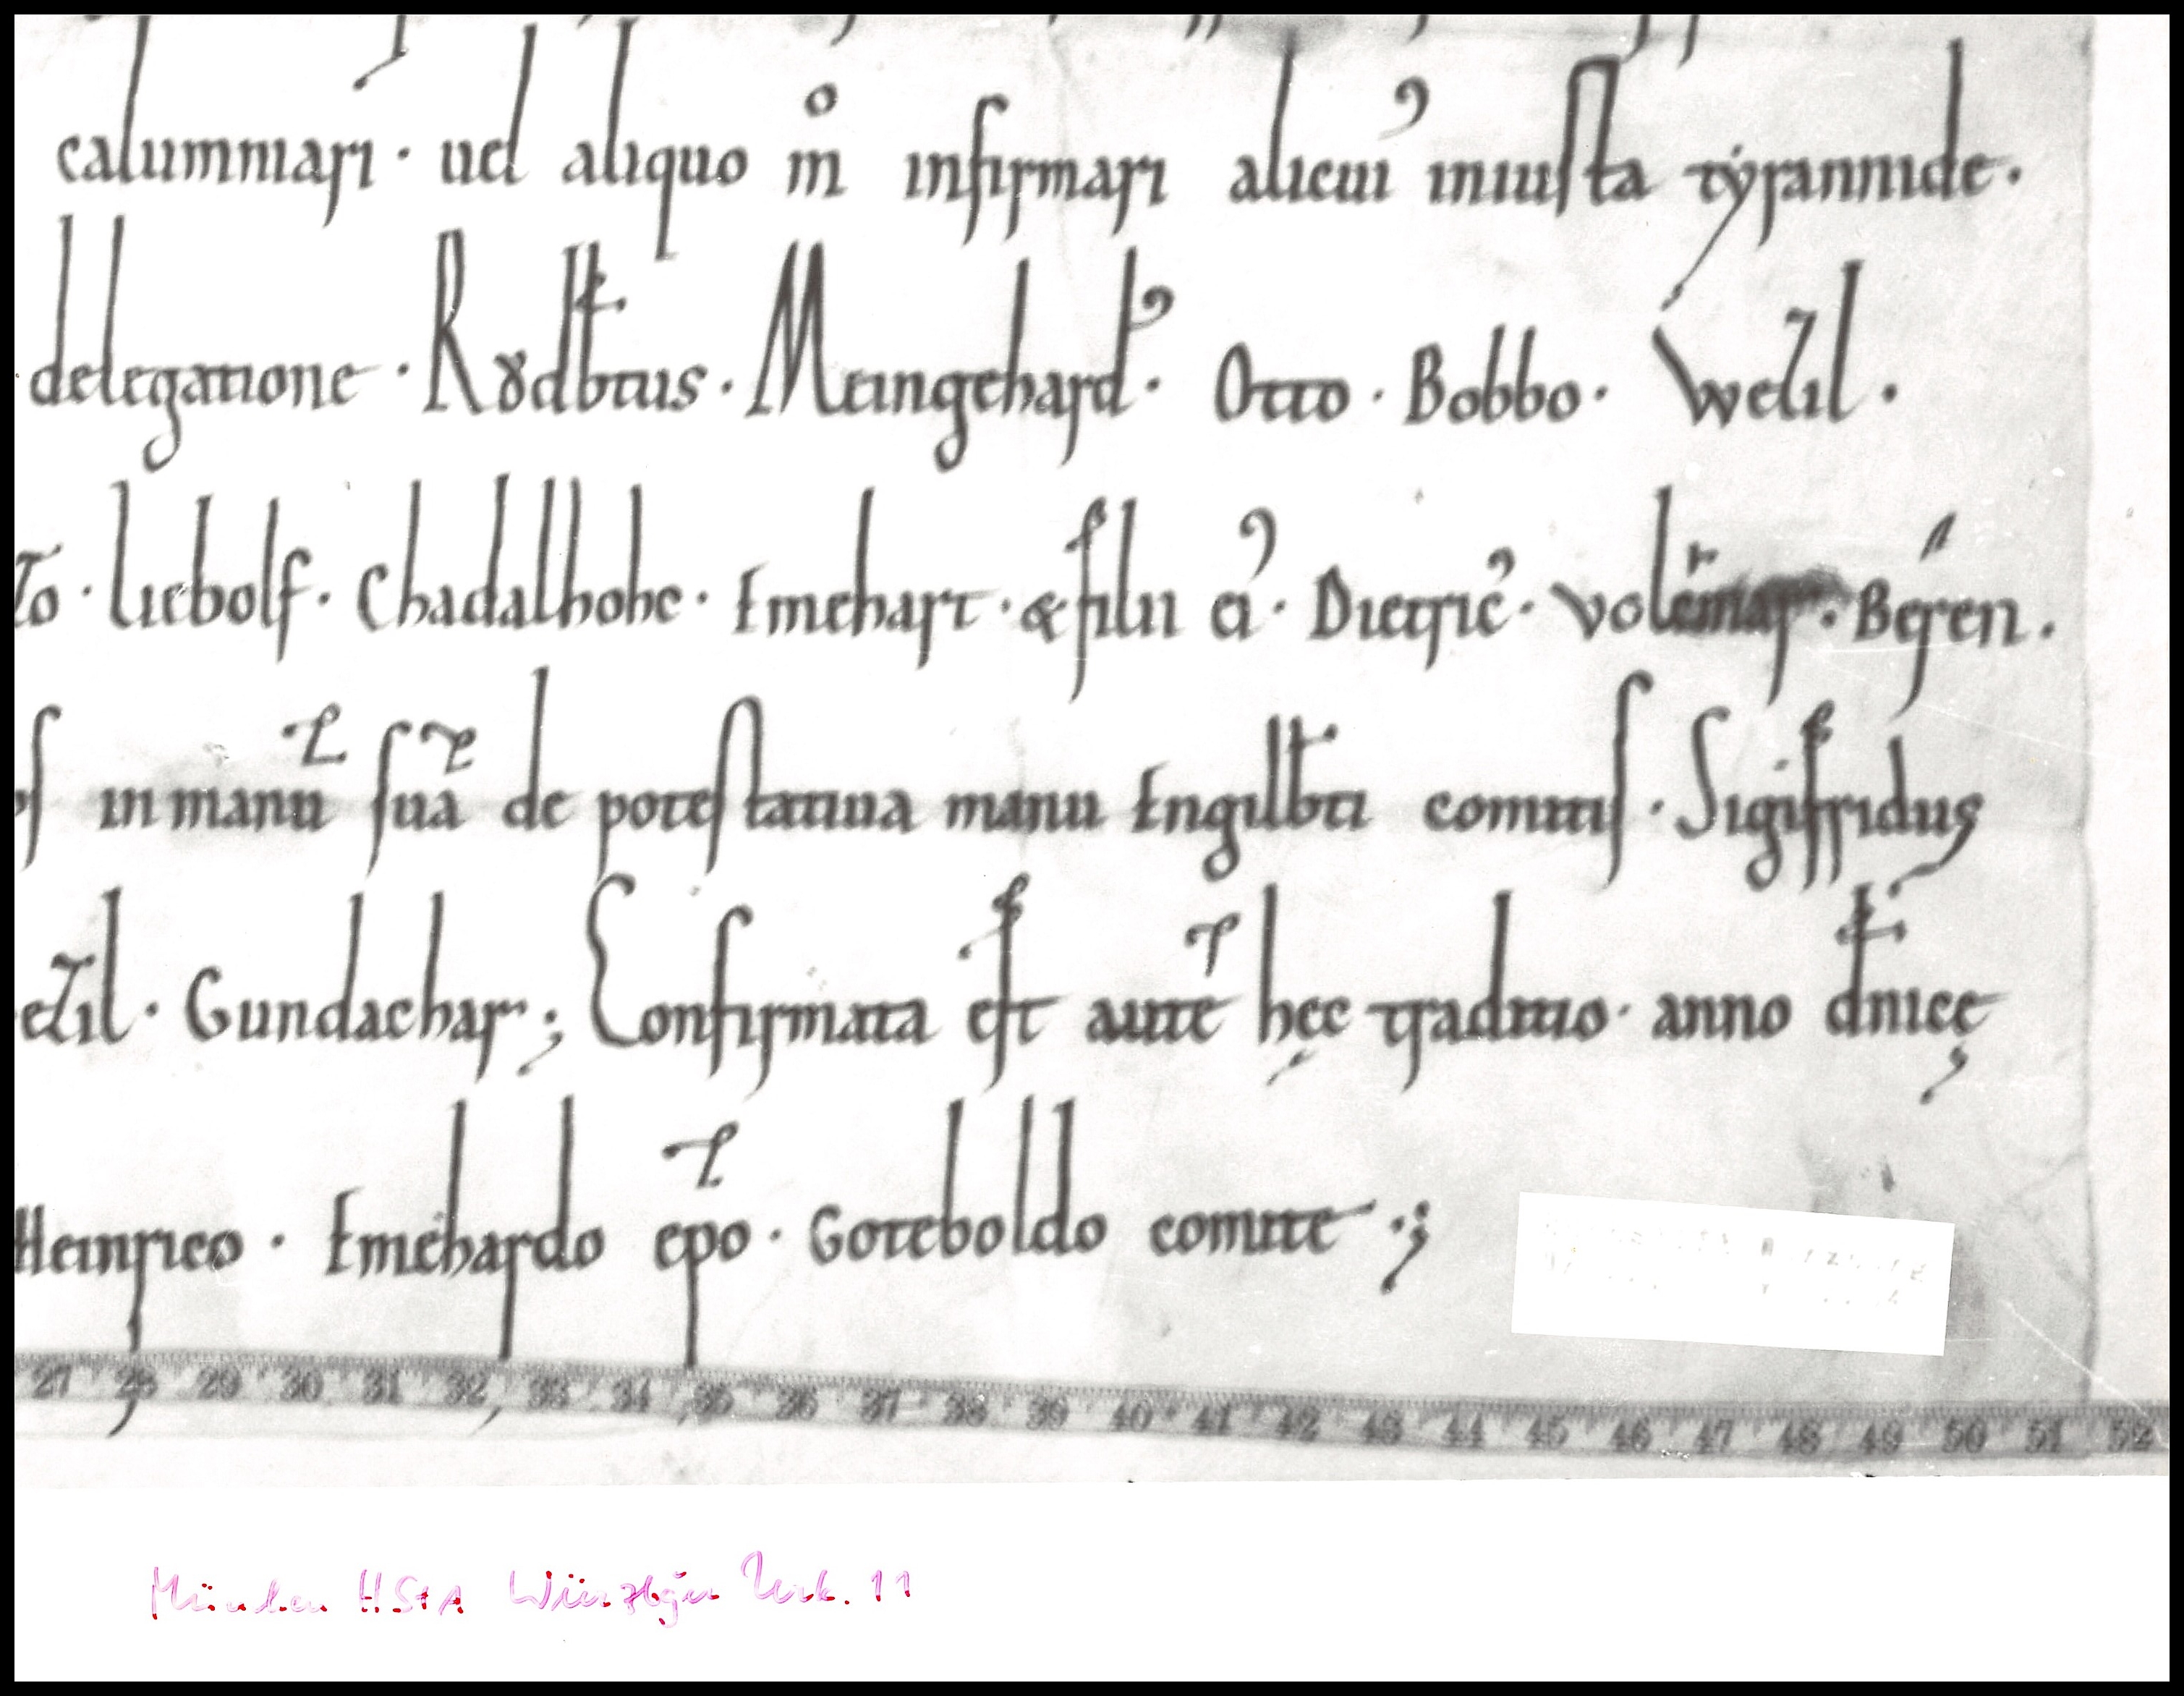 calumniari · uel aliquo m̊ infirmari alicui᾽ iniusta tẏrannide .
delegatione · Rȣdb̄tus · Meingehard᾽ · Otto · Bobbo · Wezil .
zo · Liebolf · Chadalhohc · Emehart · & filii ei᾽ · Dietric᾽ · Volcmar · Beren .
in manū suā de potestatiua manu Engilb̄ti comitis · Sigifridus
ezil · Gundachar ; Confirmata est̄ autē hęc traditio · anno dn̄icę
Heinrico · Emehardo ep̄o · Goteboldo comite ·;
27 28 29 30 31 32 33 34 35 36 37 38 39 40 41 42 43 44 45 46 47 48 49 50 51 52
München HStA Würzbger Urk. 11